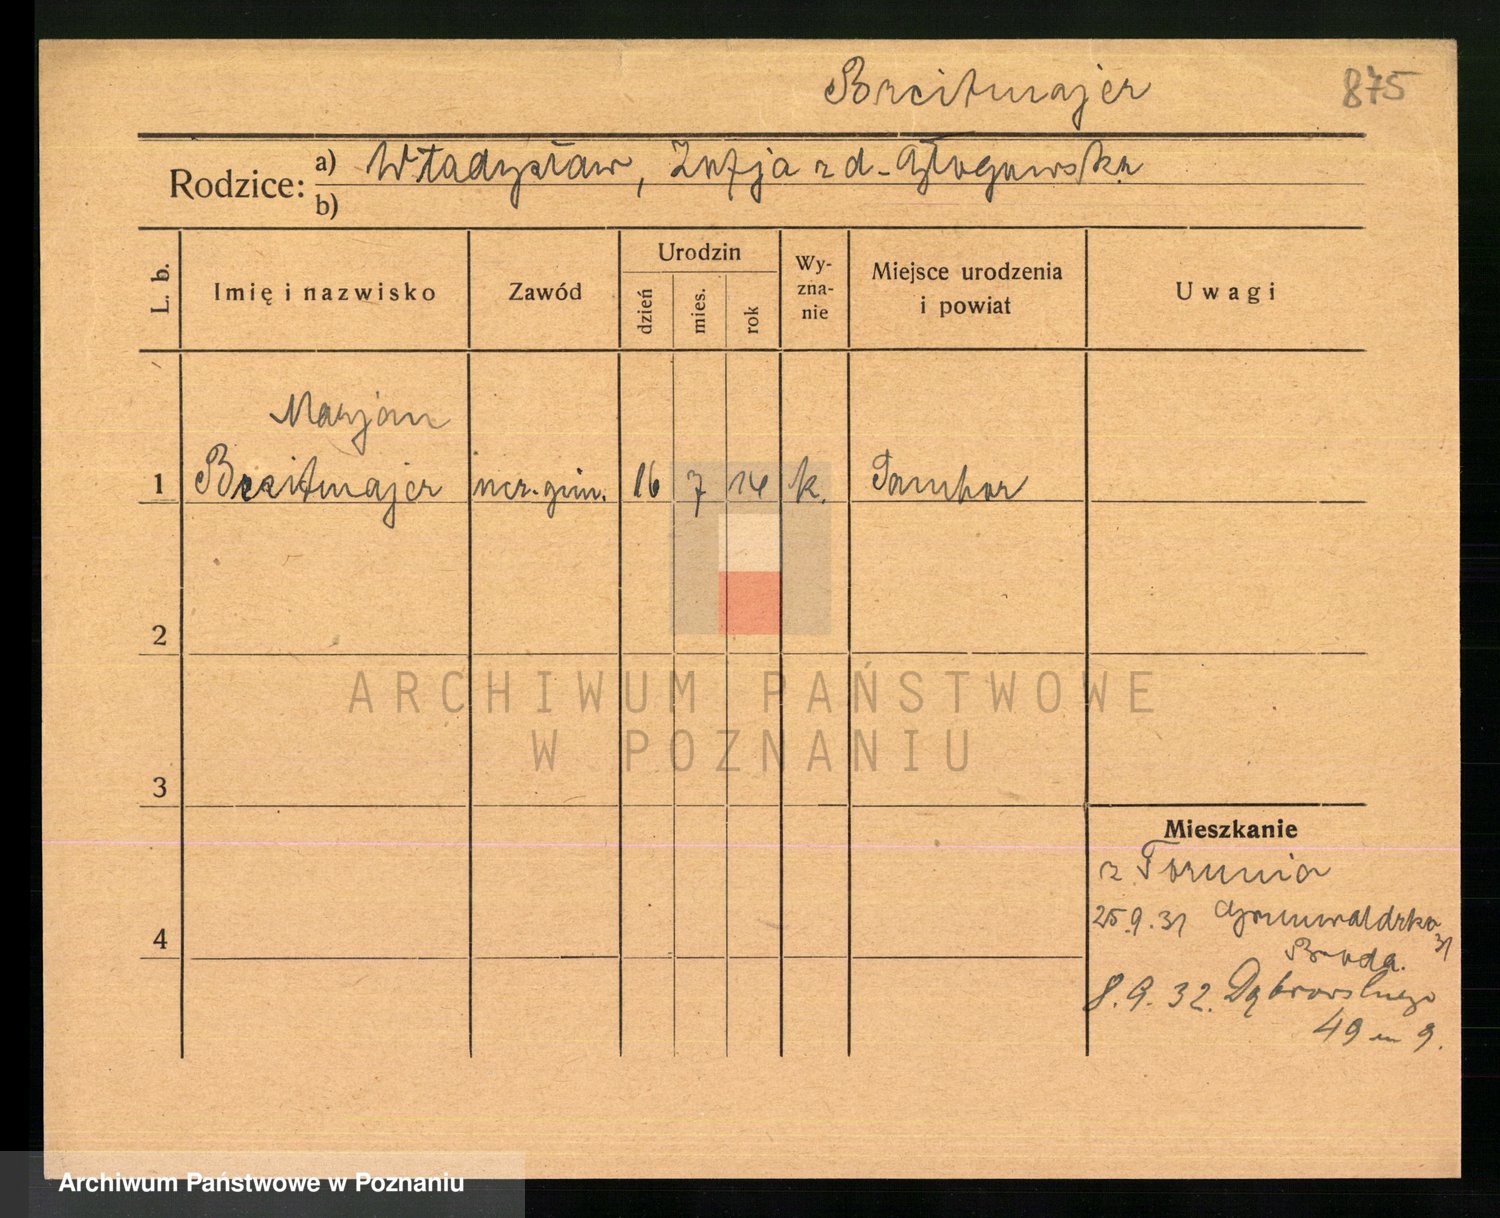 Breitmajer 875
Rodzice: a) Władysław, Zofja z d. Głogowska
b)
L. b. Imię i nazwisko Zawód Urodzin dzień mies. rok Wy-zna-nie Miejsce urodzenia i powiat Uwagi
Marjan
1 Breitmajer ucz. gim. 16 7 14 k.
2
3
4
Mieszkanie
z Torunia
25.9.31 Grunwaldzka 31
8.9.32. Dąbrowskiego
49 m 9.
ARCHIWUM PAŃSTWOWE
W POZNANIU
Archiwum Państwowe w Poznaniu